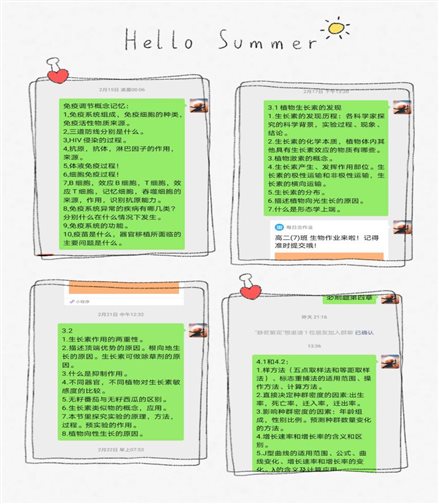 Hello Summer
2月15日 凌晨00:06
免疫调节概念记忆：
1,免疫系统组成，免疫细胞的种类，
免疫活性物质来源。
2,三道防线分别是什么。
3,HIV 侵染的过程。
4,抗原，抗体，淋巴因子的作用，
来源。
5,体液免疫过程！
6,细胞免疫过程！
7,B细胞，效应B细胞，T细胞，效
应T细胞，记忆细胞，吞噬细胞的
来源，作用，识别抗原能力。
8,免疫系统异常的疾病有哪几类？
分别什么在什么情况下发生。
9,免疫系统的功能。
10,疫苗是什么，器官移植所面临的
主要问题是什么。
3.1 植物生长素的发现
1.生长素的发现历程：各科学家探
究的科学背景，实验过程、现象、
结论。
2.生长素的化学本质，植物体内其
他具有生长素效应的物质有哪些。
3.植物激素的概念。
4.生长素产生、发挥作用部位。生
长素的极性运输和非极性运输，生
长素的横向运输。
5.生长素的分布。
6.描述植物向光生长的原因。
7.什么是形态学上端。
每日交作业
高二(7)班 生物作业来啦！记得
准时提交哦!
小程序
2月21日 中午12:32
3.2
1.生长素作用的两重性。
2.描述顶端优势的原因。根向地生
长的原因。生长素可做除草剂的原
因。
3.什么是抑制作用。
4.不同器官，不同植物对生长素敏
感度的比较。
5.无籽番茄与无籽西瓜的区别。
6.生长素类似物的概念，应用。
7.本节里探究实验的原理，方法，
过程。预实验的作用。
8.植物向性生长的原因。
2月22日 早上07:53
必刷题第四章
昨天 21:16
已确认
13:36
4.1和4.2：
1.样方法（五点取样法和等距取样
法）、标志重捕法的适用范围、操
作方法、计算方法。
2.直接决定种群密度的因素:出生
率，死亡率，迁入率，迁出率。
3.影响种群密度的因素：年龄组
成，性别比例。预测种群数量变化
的方法。
4.增长速率和增长率的含义和区
别。
5.J型曲线的适用范围、公式、曲
线变化、增长速率和增长率的变
化。λ的含义及计算应用